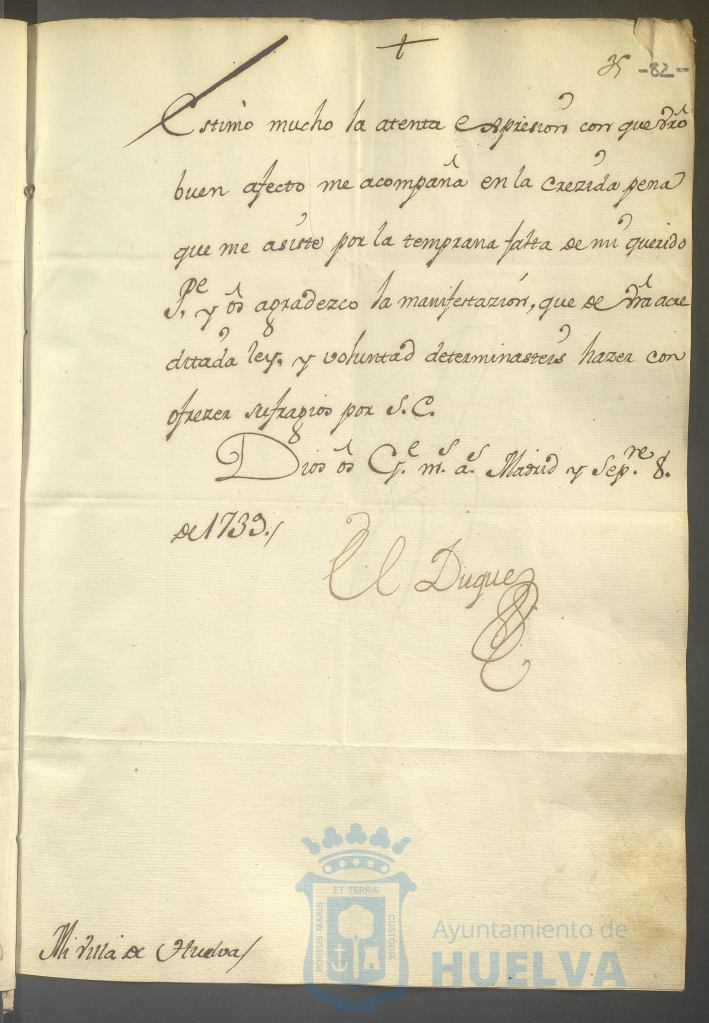 †
35 -82-
Estimo mucho la atenta expresion con que vrõ
buen afecto me acompaña en la crezida pena
que me asiste por la temprana falta de mi querido
Pe. y os agradezco la manifestazión, que de vrã acre
ditada ley, y voluntad determinasteis hazer con
ofrezer sufragios por S.E.
Dios os Ge. ms. as. Madrid y Sepre. 8.
de 1739./
El Duque
Mi Villa de Huelva/
PORTUS MARIS
ET TERRÆ
CUSTODIA
Ayuntamiento de
HUELVA